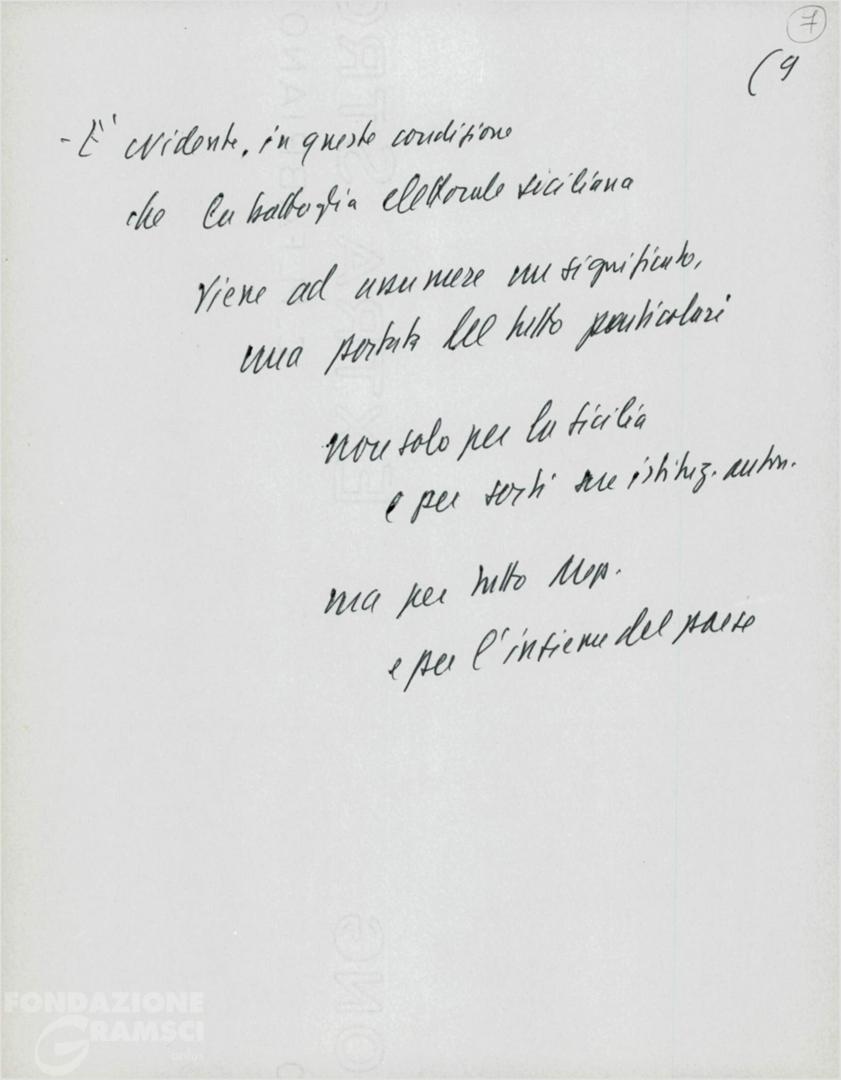 7
(9
- E' evidente, in queste condizione
che la battaglia elettorale siciliana
viene ad assumere un significato,
una portata del tutto particolari
non solo per la Sicilia
e per sorti sue istituz. auton.
ma per tutto Mep.
e per l'insieme del paese
FONDAZIONE
GRAMSCI
onlus